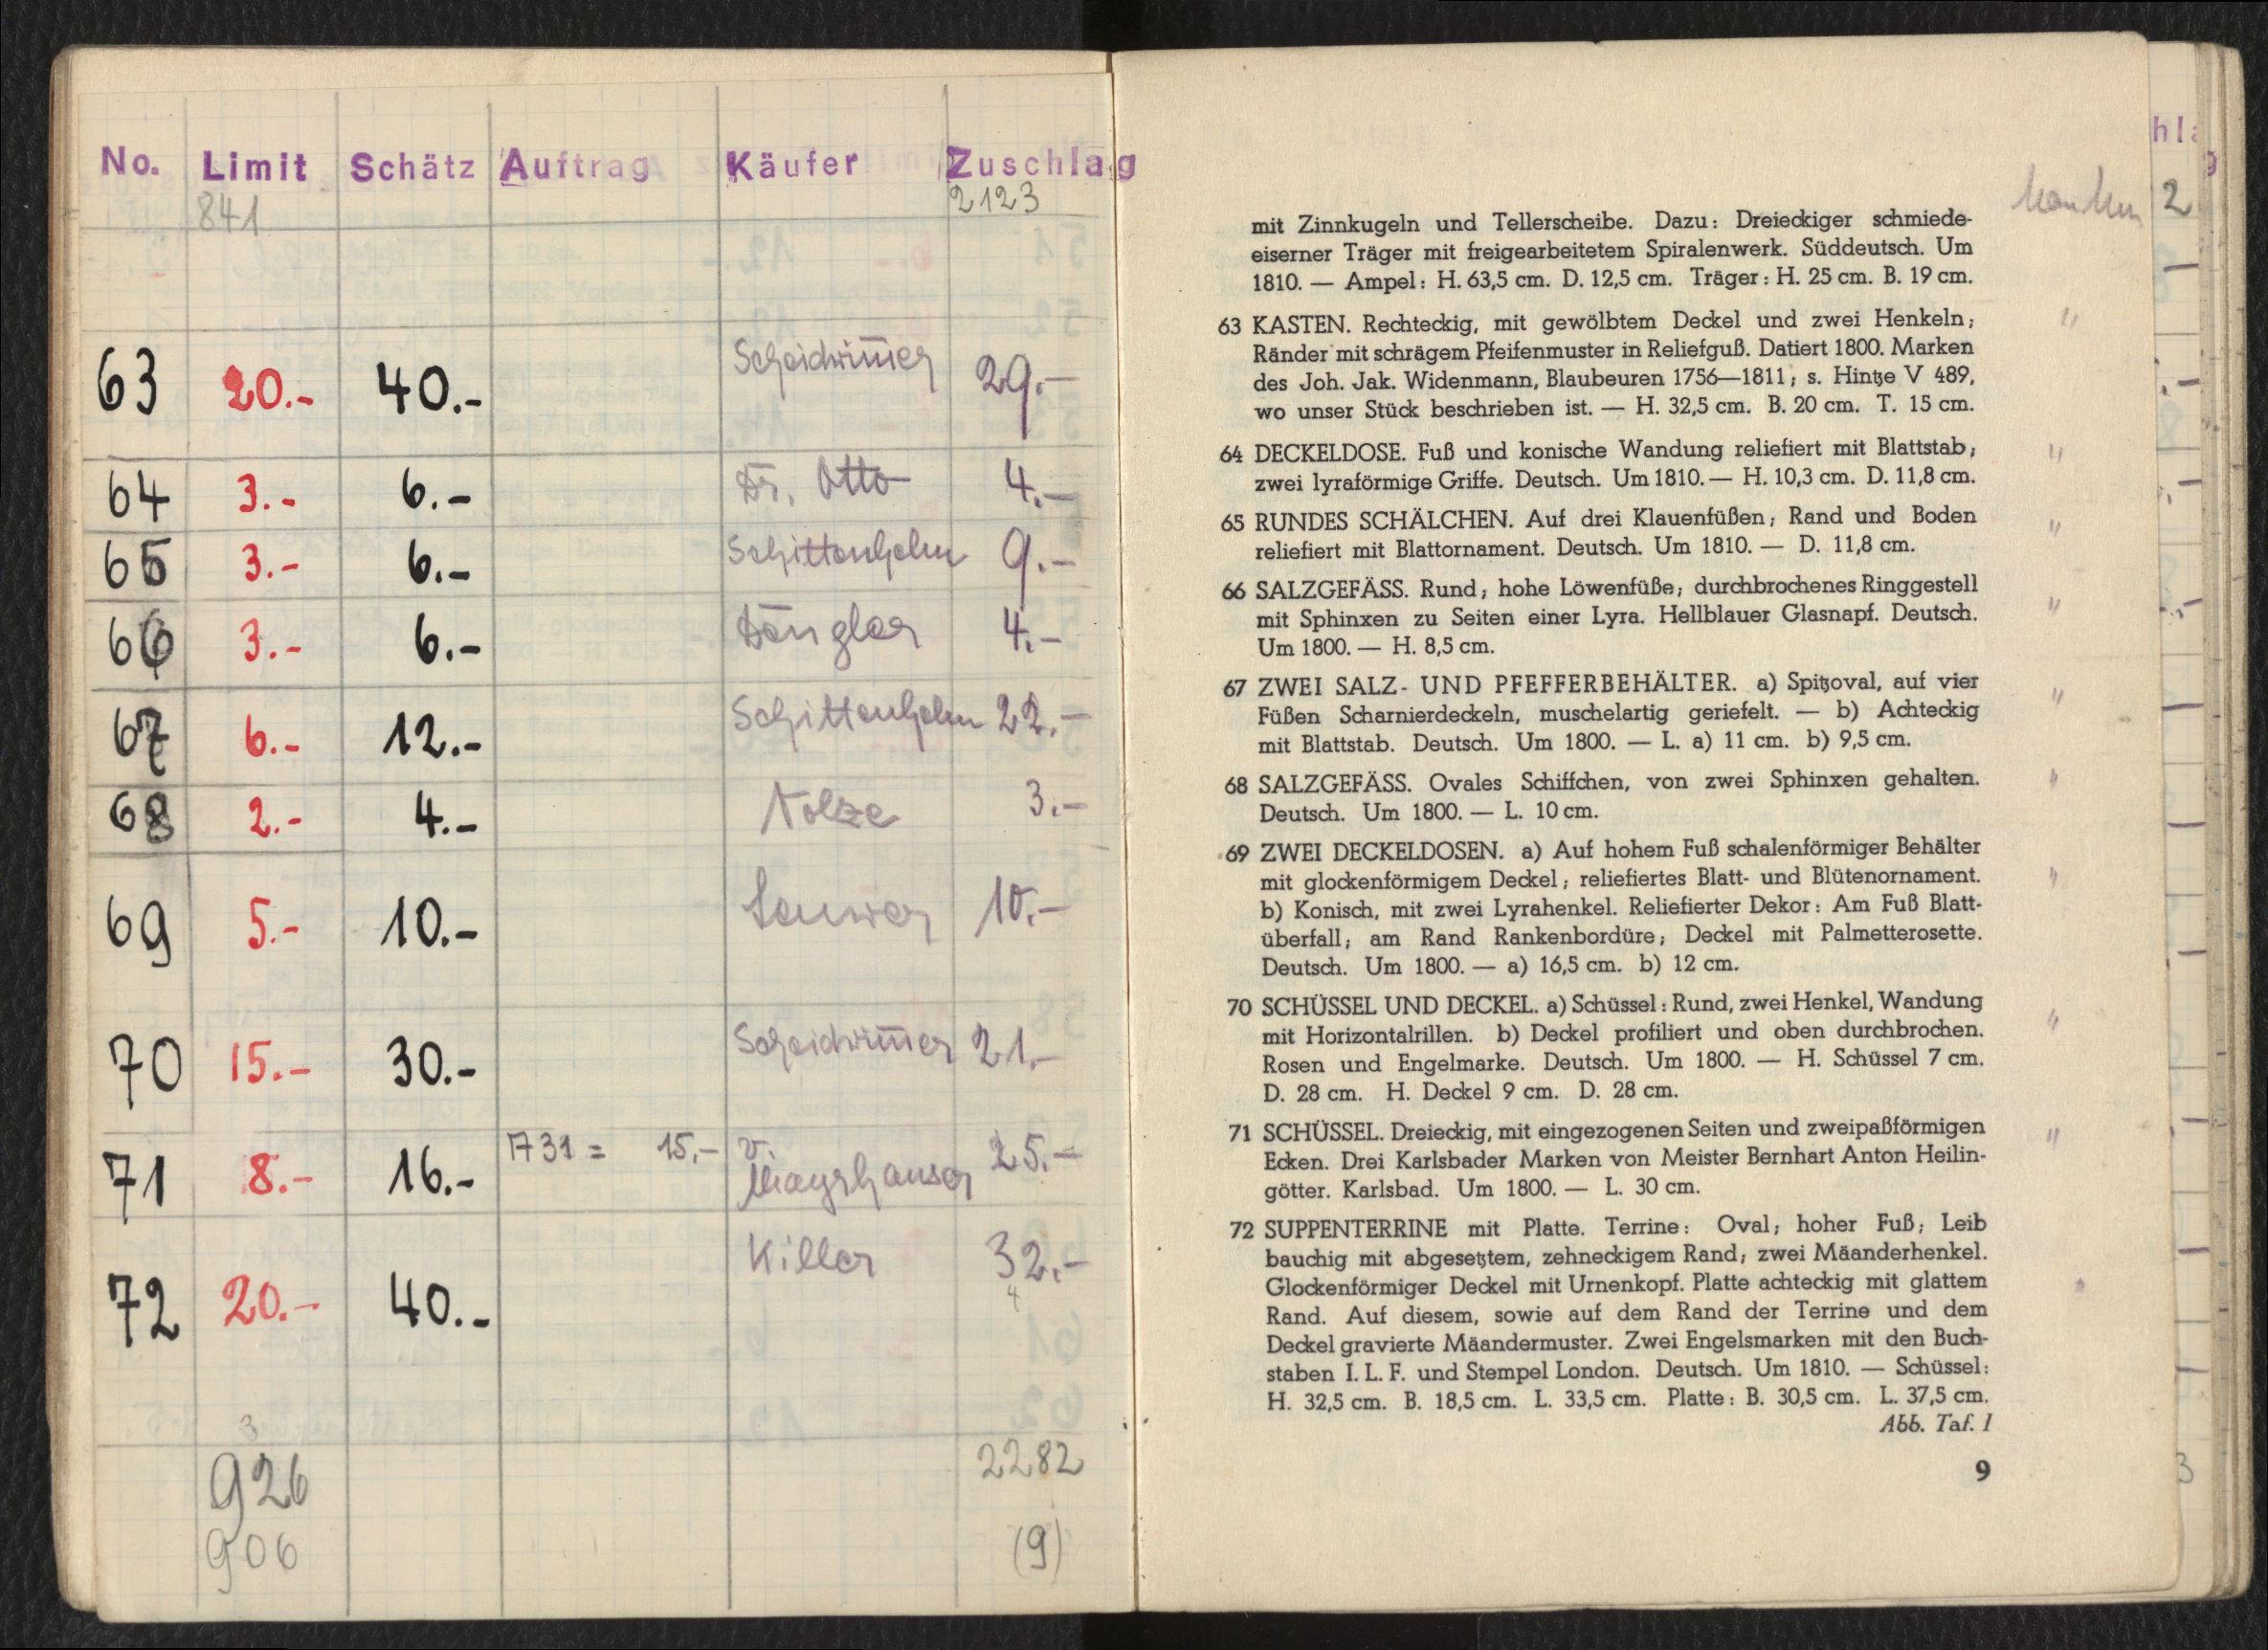 No. Limit Schätz Auftrag Käufer Zuschlag
841 2123
63 20.- 40.- Scheidwimmer 29.-
64 3.- 6.- Dr. Otto 4.-
65 3.- 6.- Schittenhelm 9.-
66 3.- 6.- Däng­ler 4.-
67 6.- 12.- Schittenhelm 22.-
68 2.- 4.- Nolze 3.-
69 5.- 10.- 10.-
70 15.- 30.- Scheidwimmer 21.-
71 8.- 16.- 1731 = 15.- v. Mayrhauser 25.-
72 20.- 40.- Killer 32.-
4
3
926 2282
906 (9)
mit Zinnkugeln und Tellerscheibe. Dazu: Dreieckiger schmiede-
eiserner Träger mit freigearbeitetem Spiralenwerk. Süddeutsch. Um
1810. — Ampel: H. 63,5 cm. D. 12,5 cm. Träger: H. 25 cm. B. 19 cm.
63 KASTEN. Rechteckig, mit gewölbtem Deckel und zwei Henkeln; "
Ränder mit schrägem Pfeifenmuster in Reliefguß. Datiert 1800. Marken
des Joh. Jak. Widenmann, Blaubeuren 1756—1811; s. Hintze V 489,
wo unser Stück beschrieben ist. — H. 32,5 cm. B. 20 cm. T. 15 cm.
64 DECKELDOSE. Fuß und konische Wandung reliefiert mit Blattstab; "
zwei lyraförmige Griffe. Deutsch. Um 1810. — H. 10,3 cm. D. 11,8 cm.
65 RUNDES SCHÄLCHEN. Auf drei Klauenfüßen; Rand und Boden "
reliefiert mit Blattornament. Deutsch. Um 1810. — D. 11,8 cm.
66 SALZGEFÄSS. Rund; hohe Löwenfüße; durchbrochenes Ringgestell "
mit Sphinxen zu Seiten einer Lyra. Hellblauer Glasnapf. Deutsch.
Um 1800. — H. 8,5 cm.
67 ZWEI SALZ- UND PFEFFERBEHÄLTER. a) Spitzoval, auf vier "
Füßen Scharnierdeckeln, muschelartig geriefelt. — b) Achteckig
mit Blattstab. Deutsch. Um 1800. — L. a) 11 cm. b) 9,5 cm.
68 SALZGEFÄSS. Ovales Schiffchen, von zwei Sphinxen gehalten. "
Deutsch. Um 1800. — L. 10 cm.
69 ZWEI DECKELDOSEN. a) Auf hohem Fuß schalenförmiger Behälter "
mit glockenförmigem Deckel; reliefiertes Blatt- und Blütenornament.
b) Konisch, mit zwei Lyrahenkel. Reliefierter Dekor: Am Fuß Blatt-
überfall; am Rand Rankenbordüre; Deckel mit Palmetterosette.
Deutsch. Um 1800. — a) 16,5 cm. b) 12 cm.
70 SCHÜSSEL UND DECKEL. a) Schüssel: Rund, zwei Henkel, Wandung "
mit Horizontalrillen. b) Deckel profiliert und oben durchbrochen.
Rosen und Engelmarke. Deutsch. Um 1800. — H. Schüssel 7 cm.
D. 28 cm. H. Deckel 9 cm. D. 28 cm.
71 SCHÜSSEL. Dreieckig, mit eingezogenen Seiten und zweipaßförmigen "
Ecken. Drei Karlsbader Marken von Meister Bernhart Anton Heilin-
götter. Karlsbad. Um 1800. — L. 30 cm.
72 SUPPENTERRINE mit Platte. Terrine: Oval; hoher Fuß; Leib
bauchig mit abgesetztem, zehneckigem Rand; zwei Mäanderhenkel.
Glockenförmiger Deckel mit Urnenkopf. Platte achteckig mit glattem
Rand. Auf diesem, sowie auf dem Rand der Terrine und dem
Deckel gravierte Mäandermuster. Zwei Engelsmarken mit den Buch-
staben I. L. F. und Stempel London. Deutsch. Um 1810. — Schüssel:
H. 32,5 cm. B. 18,5 cm. L. 33,5 cm. Platte: B. 30,5 cm. L. 37,5 cm.
Abb. Taf. I
9